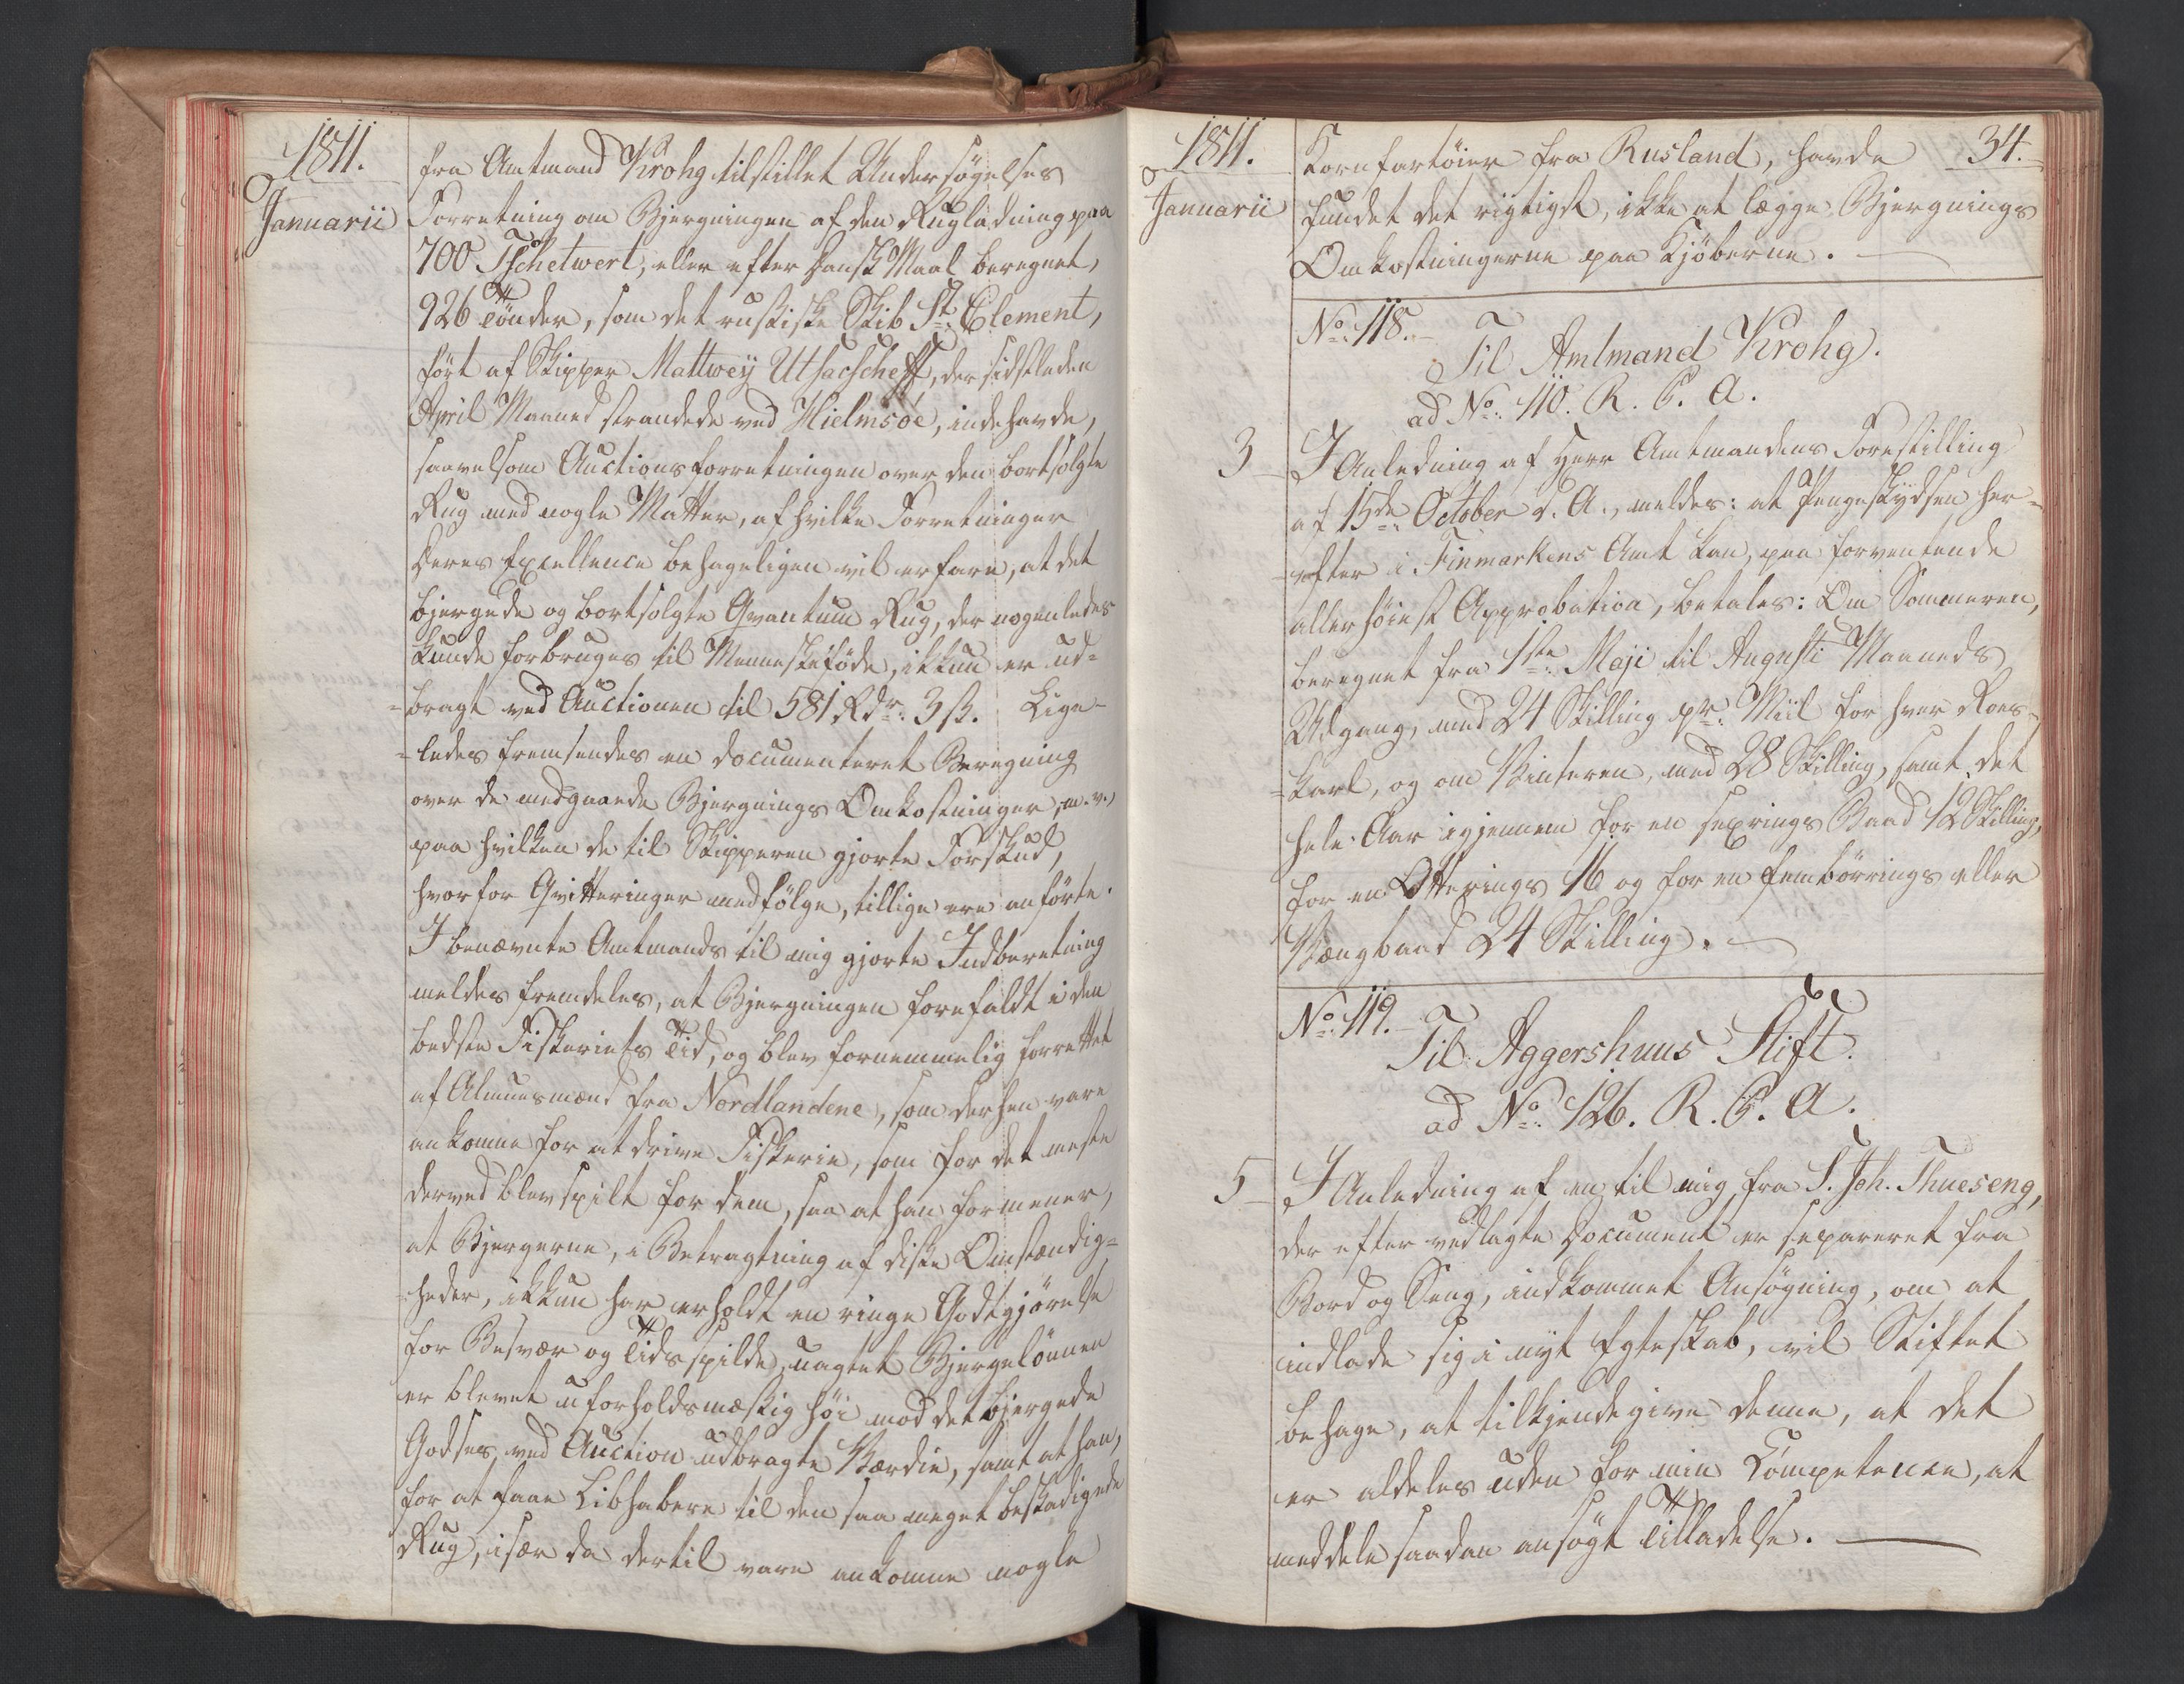 1811.
Januarii
fra Amtmand Krohg tilstillet Undersøgelses
Forretning om Bjergningen af den Rugladning paa
700 Tschetwert, eller efter Dansk Maal beregnet,
926 Tönder, som det russiske Skib St: Clement,
fört af Skipper Mattwey Utsacscheff, der sidstleden
April Maaned strandede ved Hielmsöe, indehavde,
saavelsom Auctionsforretningen over den bortsolgte
Rug med nogle Matter, af hvilke Forretninger
Deres Excellence behageligen vil erfare, at det
bjergede og bortsolgte Qvantum Rug, der nogenledes
kunde forbruges til Menneskeföde, ikkun er ud-
-bragt ved Auctionen til 581 Rdr: 3 ß. Lige-
-ledes fremsendes en documenteret Beregning
over de medgaaede Bjergnings Omkostninger m. v.,
paa hvilken de til Skipperen gjorte Forskud,
hvorfor Qvitteringer medfölge, tillige ere anförte.
I benævnte Amtmands til mig gjorte Indberetning
meldes fremdeles, at Bjergningen forefaldt i den
bedste Fiskeriets Tid, og blev fornemmelig forrettet
af Almuesmænd fra Nordlandene, som derhen vare
ankomne for at drive Fiskerie, som for det meste
derved blev spilt for dem, saa at han formener,
at Bjergerne, i Betragtning af disse Omstændig-
-heder, ikkun har erholdt en ringe Godtgjörelse
for Besvær og Tidsspilde, uagtet Bjergelönnen
er blevet uforholdsmæssig höi mod det bjergede
Godses ved Auction udbragte Værdie, samt at han,
for at faae Liebhabere til den saa meget beskadigede
Rug, især da dertil vare ankomne nogle
1811.
Januarii
34.
Kornfartöier fra Rusland, havde
fundet det rigtigst, ikke at lægge Bjergnings
Omkostningerne paa Kjöberne.
No: 118.
Til Amtmand Krohg.
ad No: 110. R. C. A.
3
I Anledning af Herr Amtmandens Forestilling
af 15de October d. A., meldes: at Pengeskydsen her-
-efter i Finmarkens Amt kan, paa forventende
allerhöiest Approbation, betales: Om Sommeren,
beregnet fra 1ste Maji til Augusti Maaneds
Udgang, med 24 Skilling pr: Miil for hver Roes-
-karl, og om Vinteren, med 28 Skilling, samt det
hele Aar igjennem for en sexrings Baad 12 Skilling,
for en Otterings 16 og for en fembörrings eller
Vængbaad 24 Skilling.
No: 119.
Til Aggershuus Stift.
ad No: 126. R. C. A.
5
I Anledning af en til mig fra S. Joh. Thueseng,
der efter vedlagte Document er separeret fra
Bord og Seng, indkommet Ansøgning, om at
indlade sig i nyt Egteskab, vil Stiftet
behage, at tilkjendegive denne, at det
er aldeles uden for min Competence, at
meddele saadan ansøgt Tilladelse.